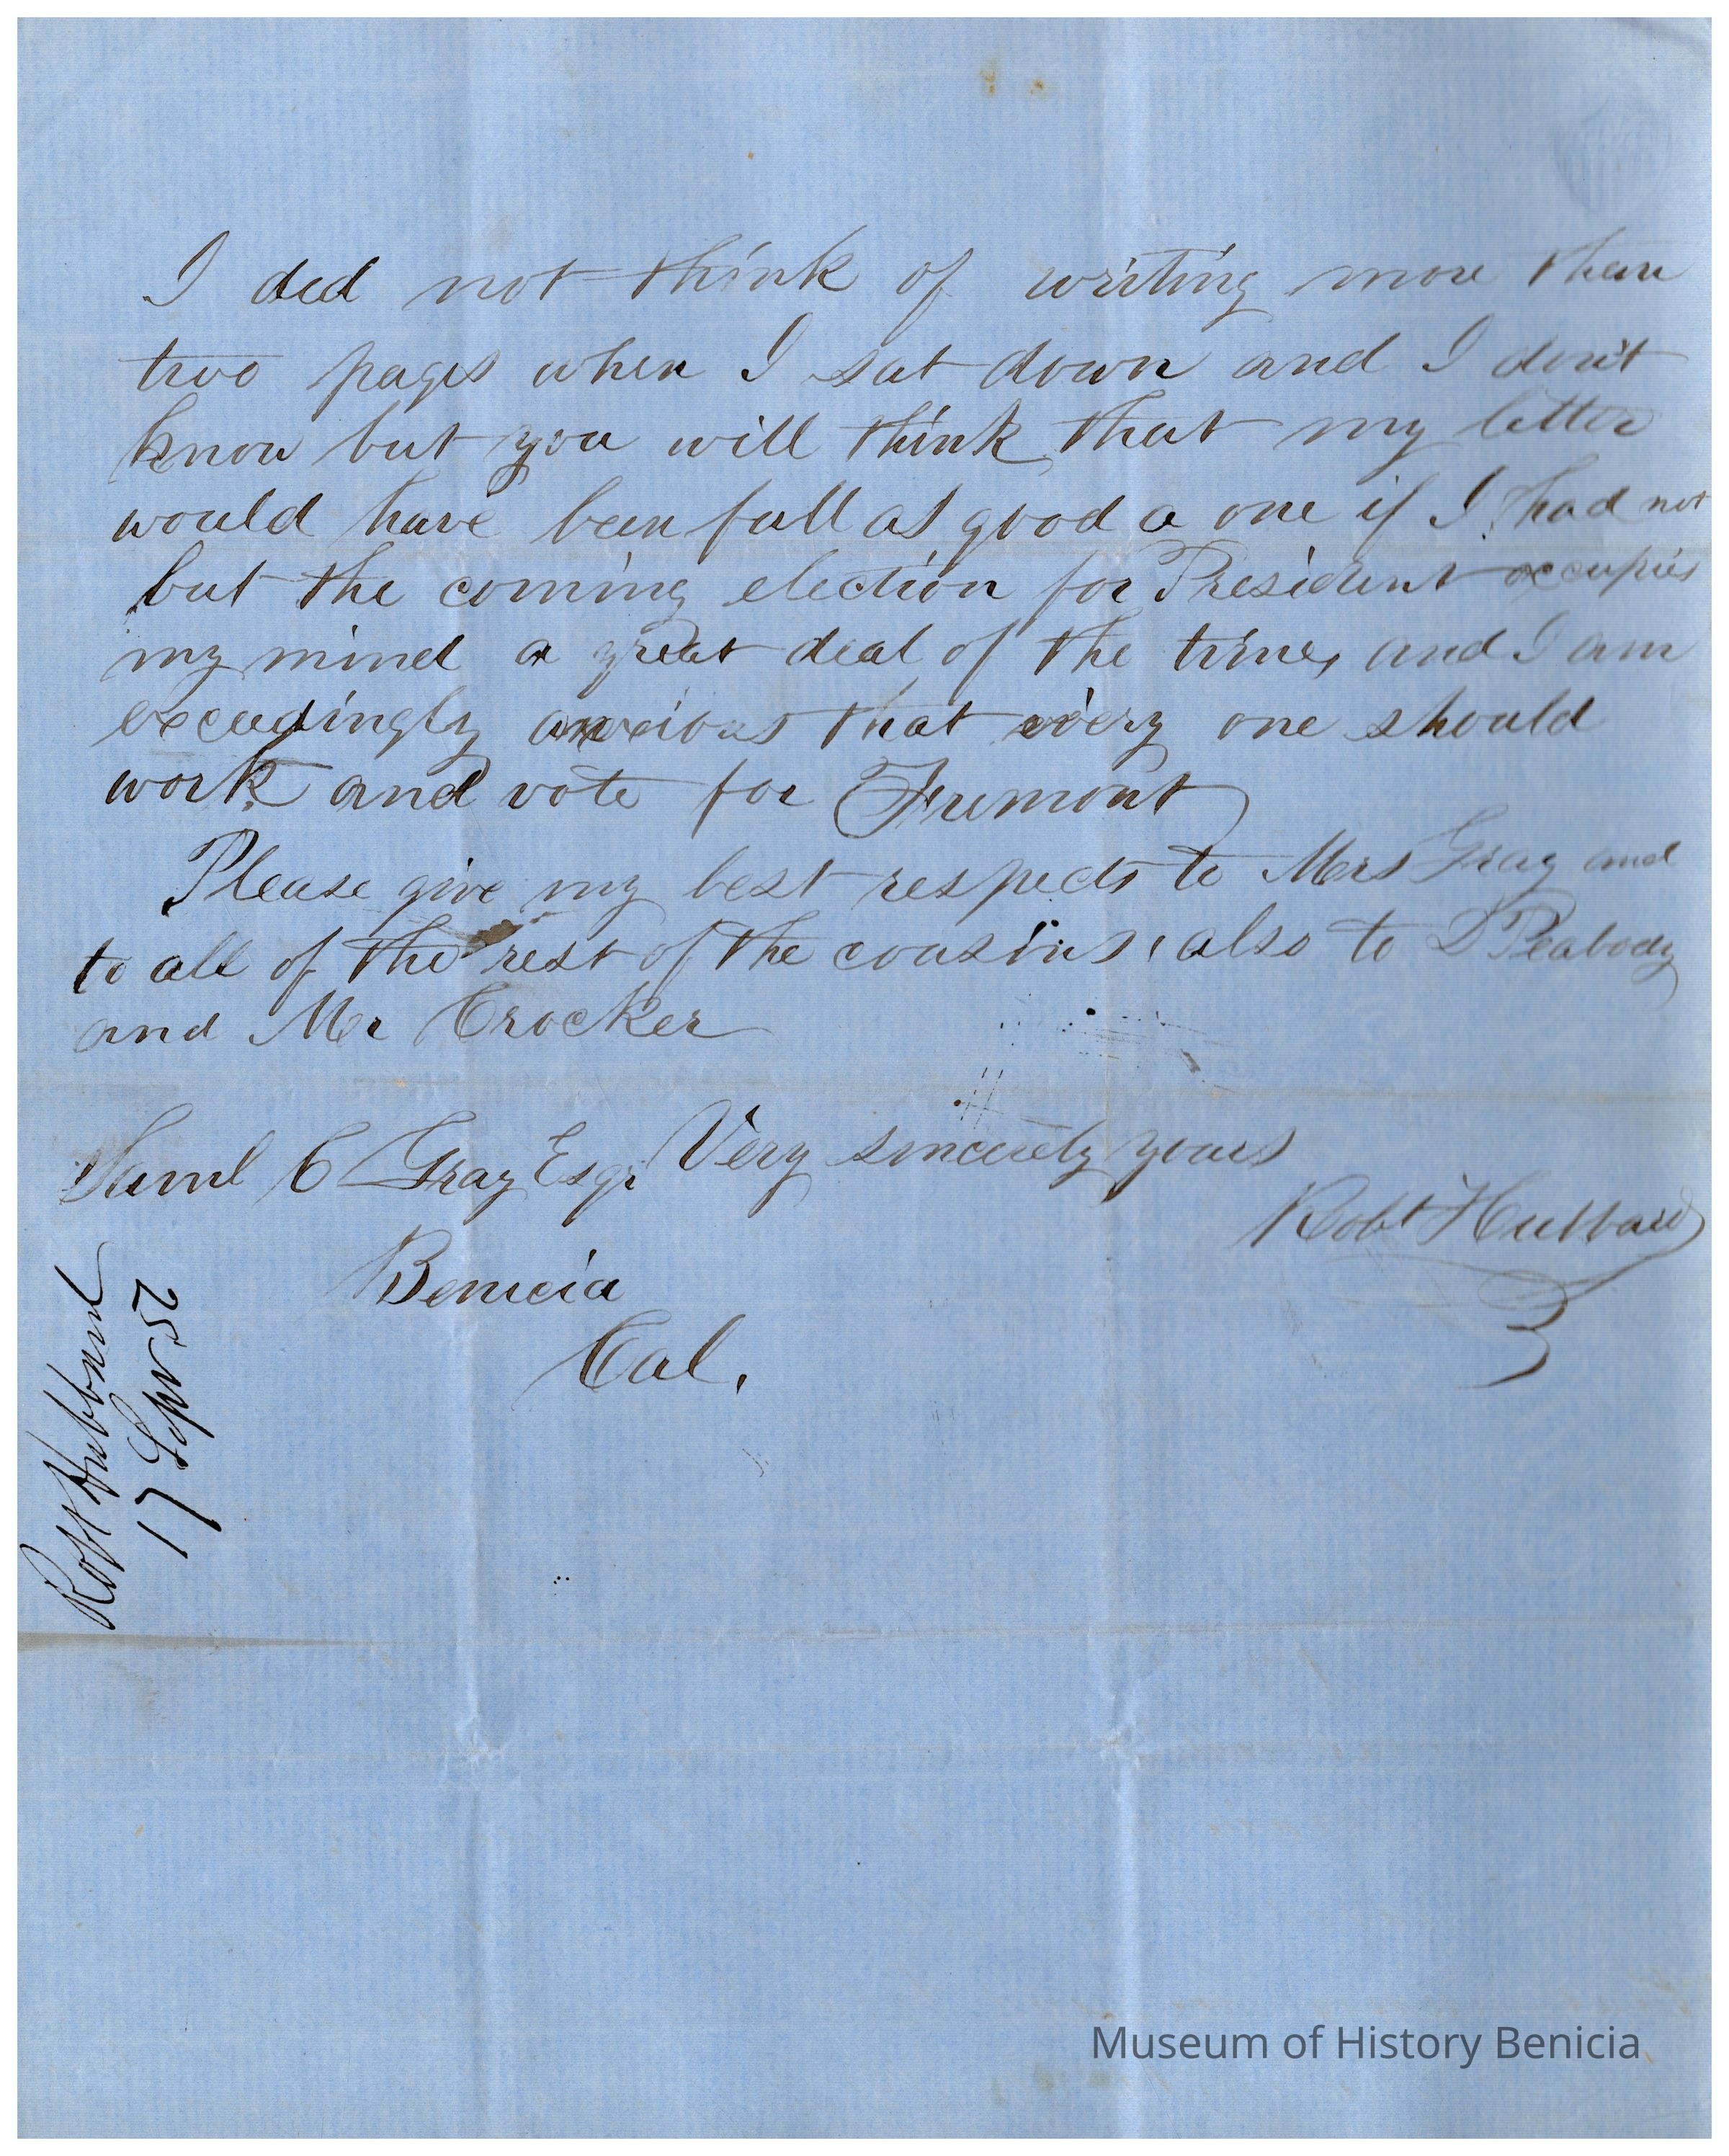 I did not think of writing more than
two pages when I sat down and I don't
know but you will think that my letter
would have been full as good a one if I had not
but the coming election for President occupies
my mind a great deal of the time, and I am
exceedingly anxious that every one should
work and vote for Fremont
Please give my best respects to Mrs Gray and
to all of the rest of the cousins, also to D Peabody
and Mr Crocker
Very sincerely yours
Robt Hubbard
Saml C Gray Esqr
Benicia
Cal.
Robt Hubbard
17 Sepr
Museum of History Benicia